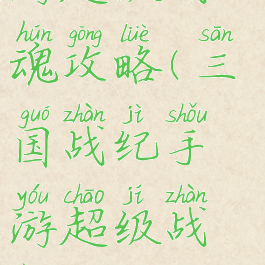 hún gōng lüè sān
魂攻略(三
guó zhàn jì shǒu
国战纪手
yóu chāo jí zhàn
游超级战